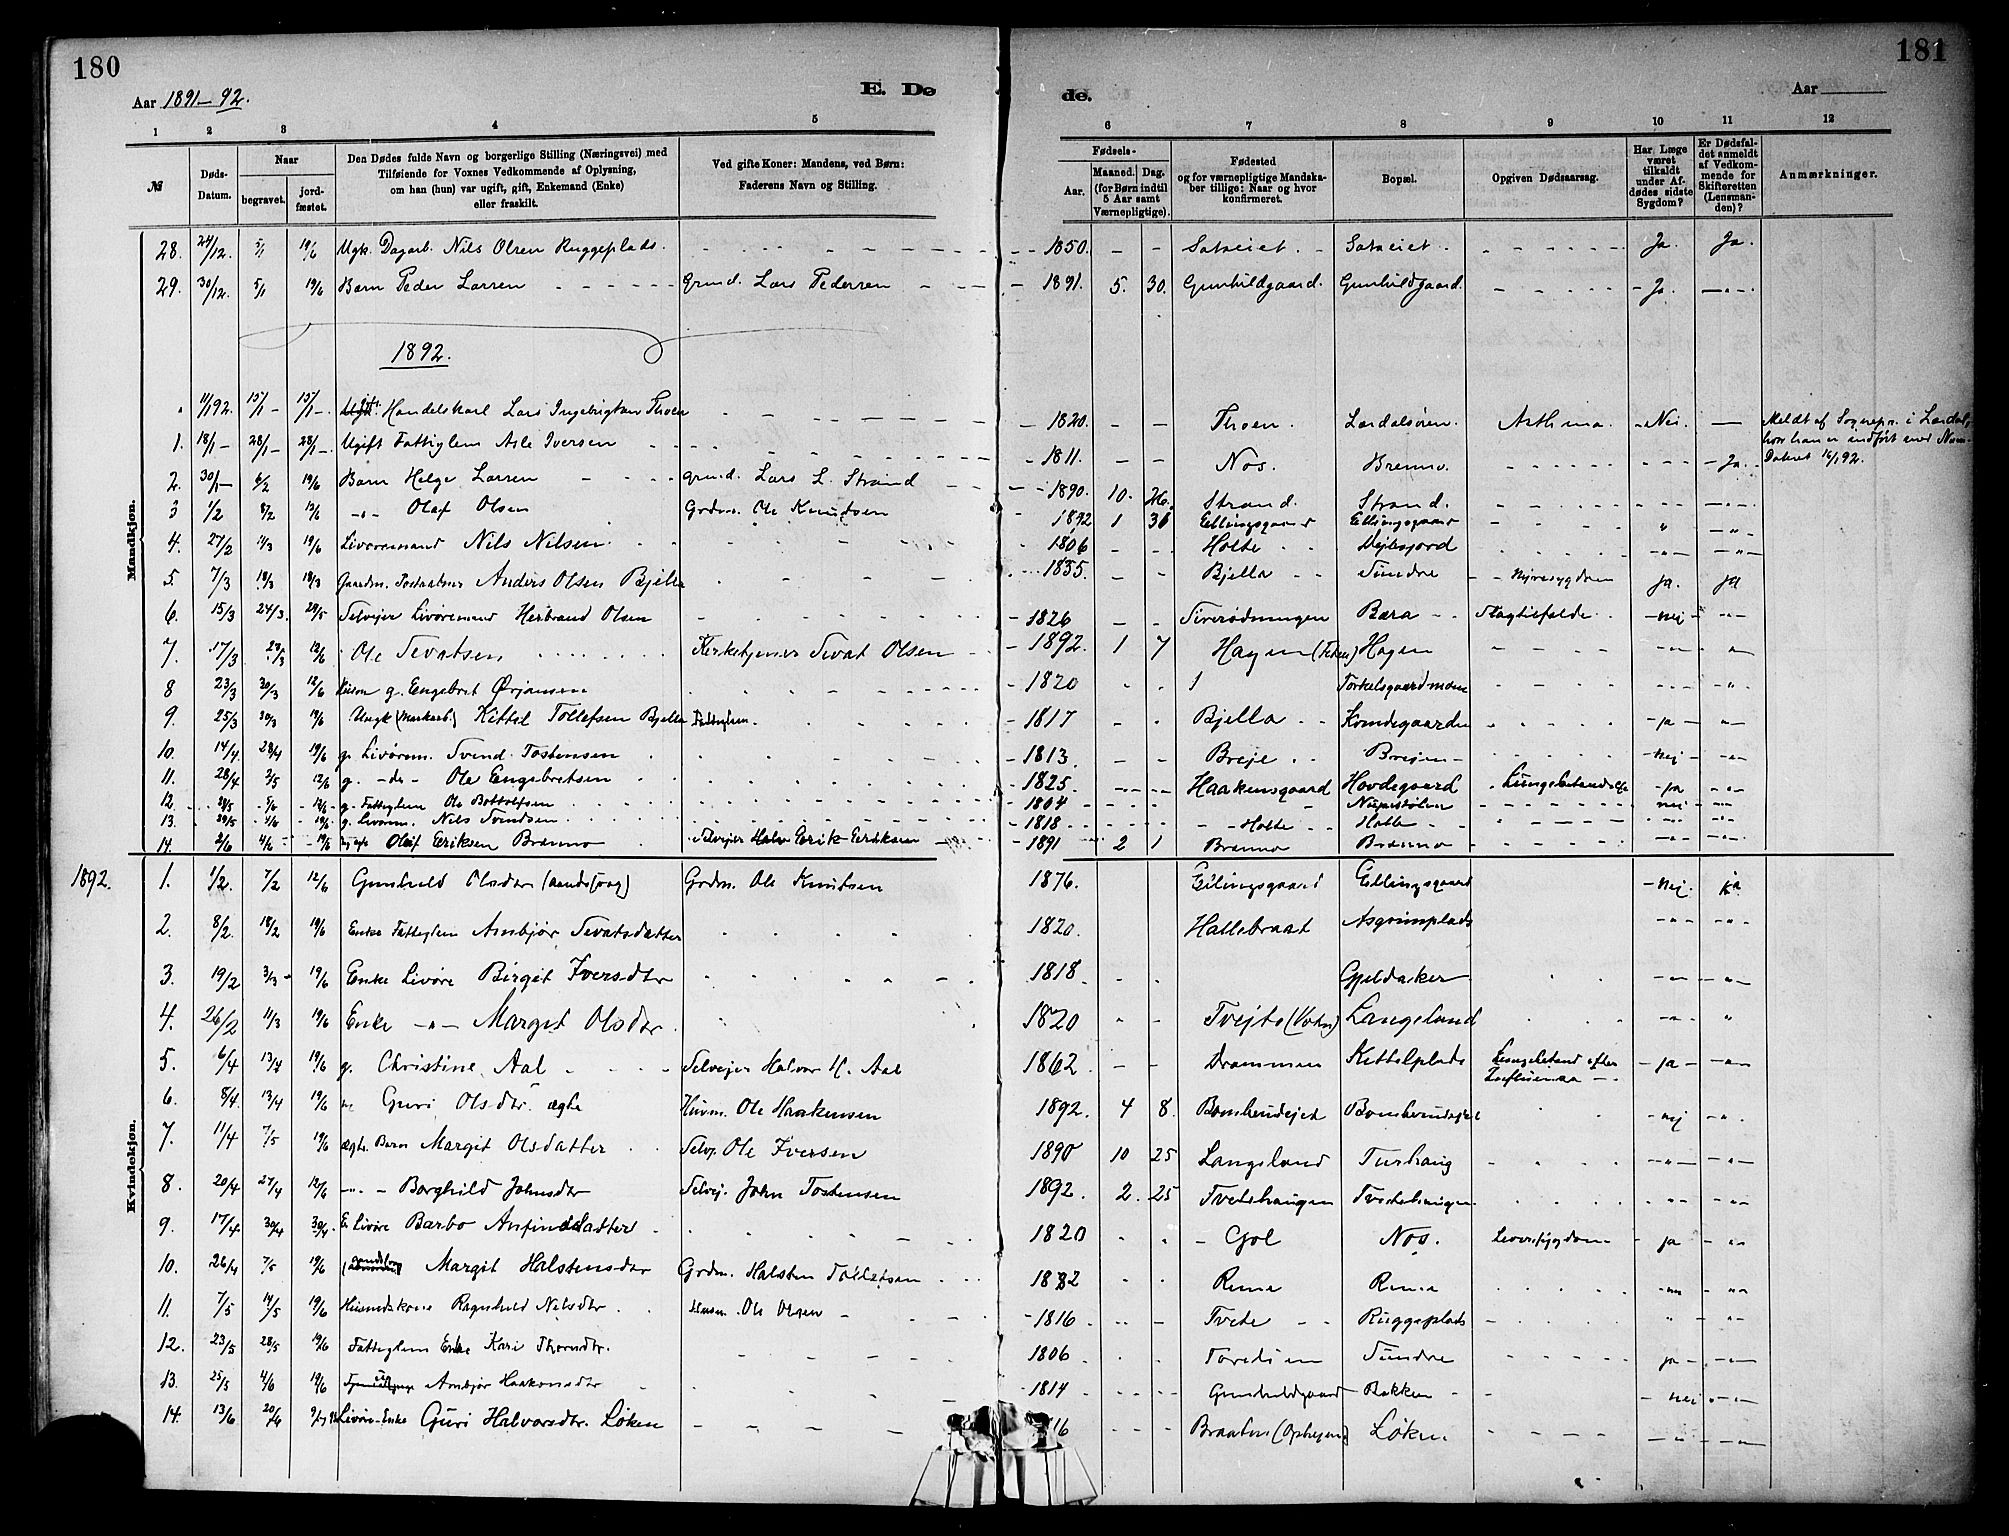 180
181
Aar 1891–92.
E. Dø
de.
Aar
1 2 3 4 5
6 7 8 9 10 11 12
№
Døds-Datum.
Naar
begravet.
jord-fæstet.
Den Dødes fulde Navn og borgerlige Stilling (Næringsvei) med Tilføiende for Voxnes Vedkommende af Oplysning, om han (hun) var ugift, gift, Enkemand (Enke) eller fraskilt.
Ved gifte Koner: Mandens, ved Børn: Faderens Navn og Stilling.
Fødsels-
Aar.
Maaned. Dag. (for Børn indtil 5 Aar samt Værnepligtige).
Fødested og for værnepligtige Mandskaber tillige: Naar og hvor konfirmeret.
Bopæl.
Opgiven Dødsaarsag.
Har Læge været tilkaldt under Afdødes sidste Sygdom?
Er Dødsfaldet anmeldt af Vedkommende for Skifteretten (Lensmanden)?
Anmærkninger.
Mandkjøn.
28. 24/12. 5/1 19/6 Ugk. Dagarb. Nils Olsen Ruggeplads. 1850. Sataeiet. Sataeiet. Ja. Ja.
29. 30/12. 5/1 19/6 Barn Peder Larsen Grmd. Lars Pedersen 1891. 5. 30. Gunhildgaard. Gunhildgaard. Ja.
1892.
11/1 92. 15/1 15/1 Handelskarl Lars Ingebrigtsen Thoen 1820. Thoen. Lærdalsøren. Asthma. Nei. Meldt af Sognepr. i Lærdal, hvor han er indført med Num. Dateret 16/1 92.
1. 18/1 28/1 28/1 Ugift Fattiglem Asle Iversen 1811. Nos. Brenno. Ja.
2. 30/1 6/2 19/6 Barn Helge Larsen Grmd. Lars L. Strand 1890. 10. Strand. Strand.
3 1/2 8/2 Olaf Olsen Grdm. Ole Knudsen 1892 1 Ellingsgaard Ellingsgaard
4. 27/2 11/3 19/6 Livøremand Nils Nilsen 1806 Holte
5. 7/3 18/3 18/3 Gaardm. Anders Olsen Bjella 1835. Bjella Sundre Nyresygdom ja. ja
6. 15/3 24/3. 29/5 Selvejer Livøremand Herbrand Olsen 1826 Bæra Slagtilfælde nej
7. 17/3 12/6 Ole Sevatsen Kirketjener Sevat Olsen 1892. 1 7 Hagen Hagen
8 23/3 30/3 12/6 Husm g. Engebret Ørjansen 1820 Torkelsgaardmoen
9. 25/3 30/3 19/6 Ungk (Markarb.) Kittil Tollefsen Bjella Fattiglem. 1817 Bjella ja
10. 14/4. 28/4 19/6 g. Livørem. Svend Tostensen 1813. Breje Brejen nej
11. 28/4 3/5 12/6 g. -do- Ole Engebretsen 1825. Haakensgaard Hovdegaard ja
12. g. Fattiglem Ole Bottolfsen 1804 nei
13. 29/5 4/6 19/6 g. Livørem. Nils Svendsen 1818 Holte Holte
14. 2/6 4/6 19/6 Olaf Eriksen Brenno Selvejer Erik Eriksen 1891 2 1 Brenno Brenno
Kvindekjøn.
1892. 1. 1/2. 7/2 12/6 Gunhild Olsdtr (aandssvag) Grdm. Ole Knutsen 1876. Ellingsgaard Ellingsgaard nej. ja.
2. 8/2. 18/2 19/6 Enke Fattiglem Ambjør Sevatsdatter 1820. Hallebraat Asgrimplads
3. 19/2 3/3 19/6 Enke Livøre Birgit Iversdtr 1818. Gjeldaker
4. 26/2 11/3 19/6 Enke Margit Olsdtr. 1820 Tvejto Langeland
5. 6/4 13/4 19/6 g. Christine Aal Selvejer Halvor H. Aal 1862. Drammen Kittelplads Lungebetend efter Influensa ja
6. 8/4. 13/4 19/6 Guri Olsdtr. ægte Husm. Ole Haakensen 1892. 4 8. nej
7. 11/4 7/5 19/6 ægte Barn Margit Olsdatter Selvj. Ole Iversen 1890 10 25 Langeland Turhaug
8. 20/4 27/4 12/6 Borghild Johnsdtr Selvej. John Tostensen 1892. 2. 25 Tvetehaugen Tvetehaugen
9. 17/4 30/4 30/4. E. Livøre Barbo Anfinsdatter 1820 Gol Nos. Leversygdom ja
10. 26/4 7/5 19/6 Margit Halstensdtr Grdm. Halsten Tollefsen 1882 Reme
11. 7/5 14/5 19/6 Husmdskone Ragnhild Nilsdtr. Husm. Ole Olsen 1816 Tveto Ruggeplads
12. 23/5 28/5 19/6 Fattiglem Enke Kari Thorsdtr. 1806 Sundre ja
13. 25/5 4/6 19/6 Ambjør Haakonsdtr 1814 Gunhildgaard Bakken nei
14. 13/6 Livøre-Enke Guri Halvorsdtr. Løken Braaten Løken